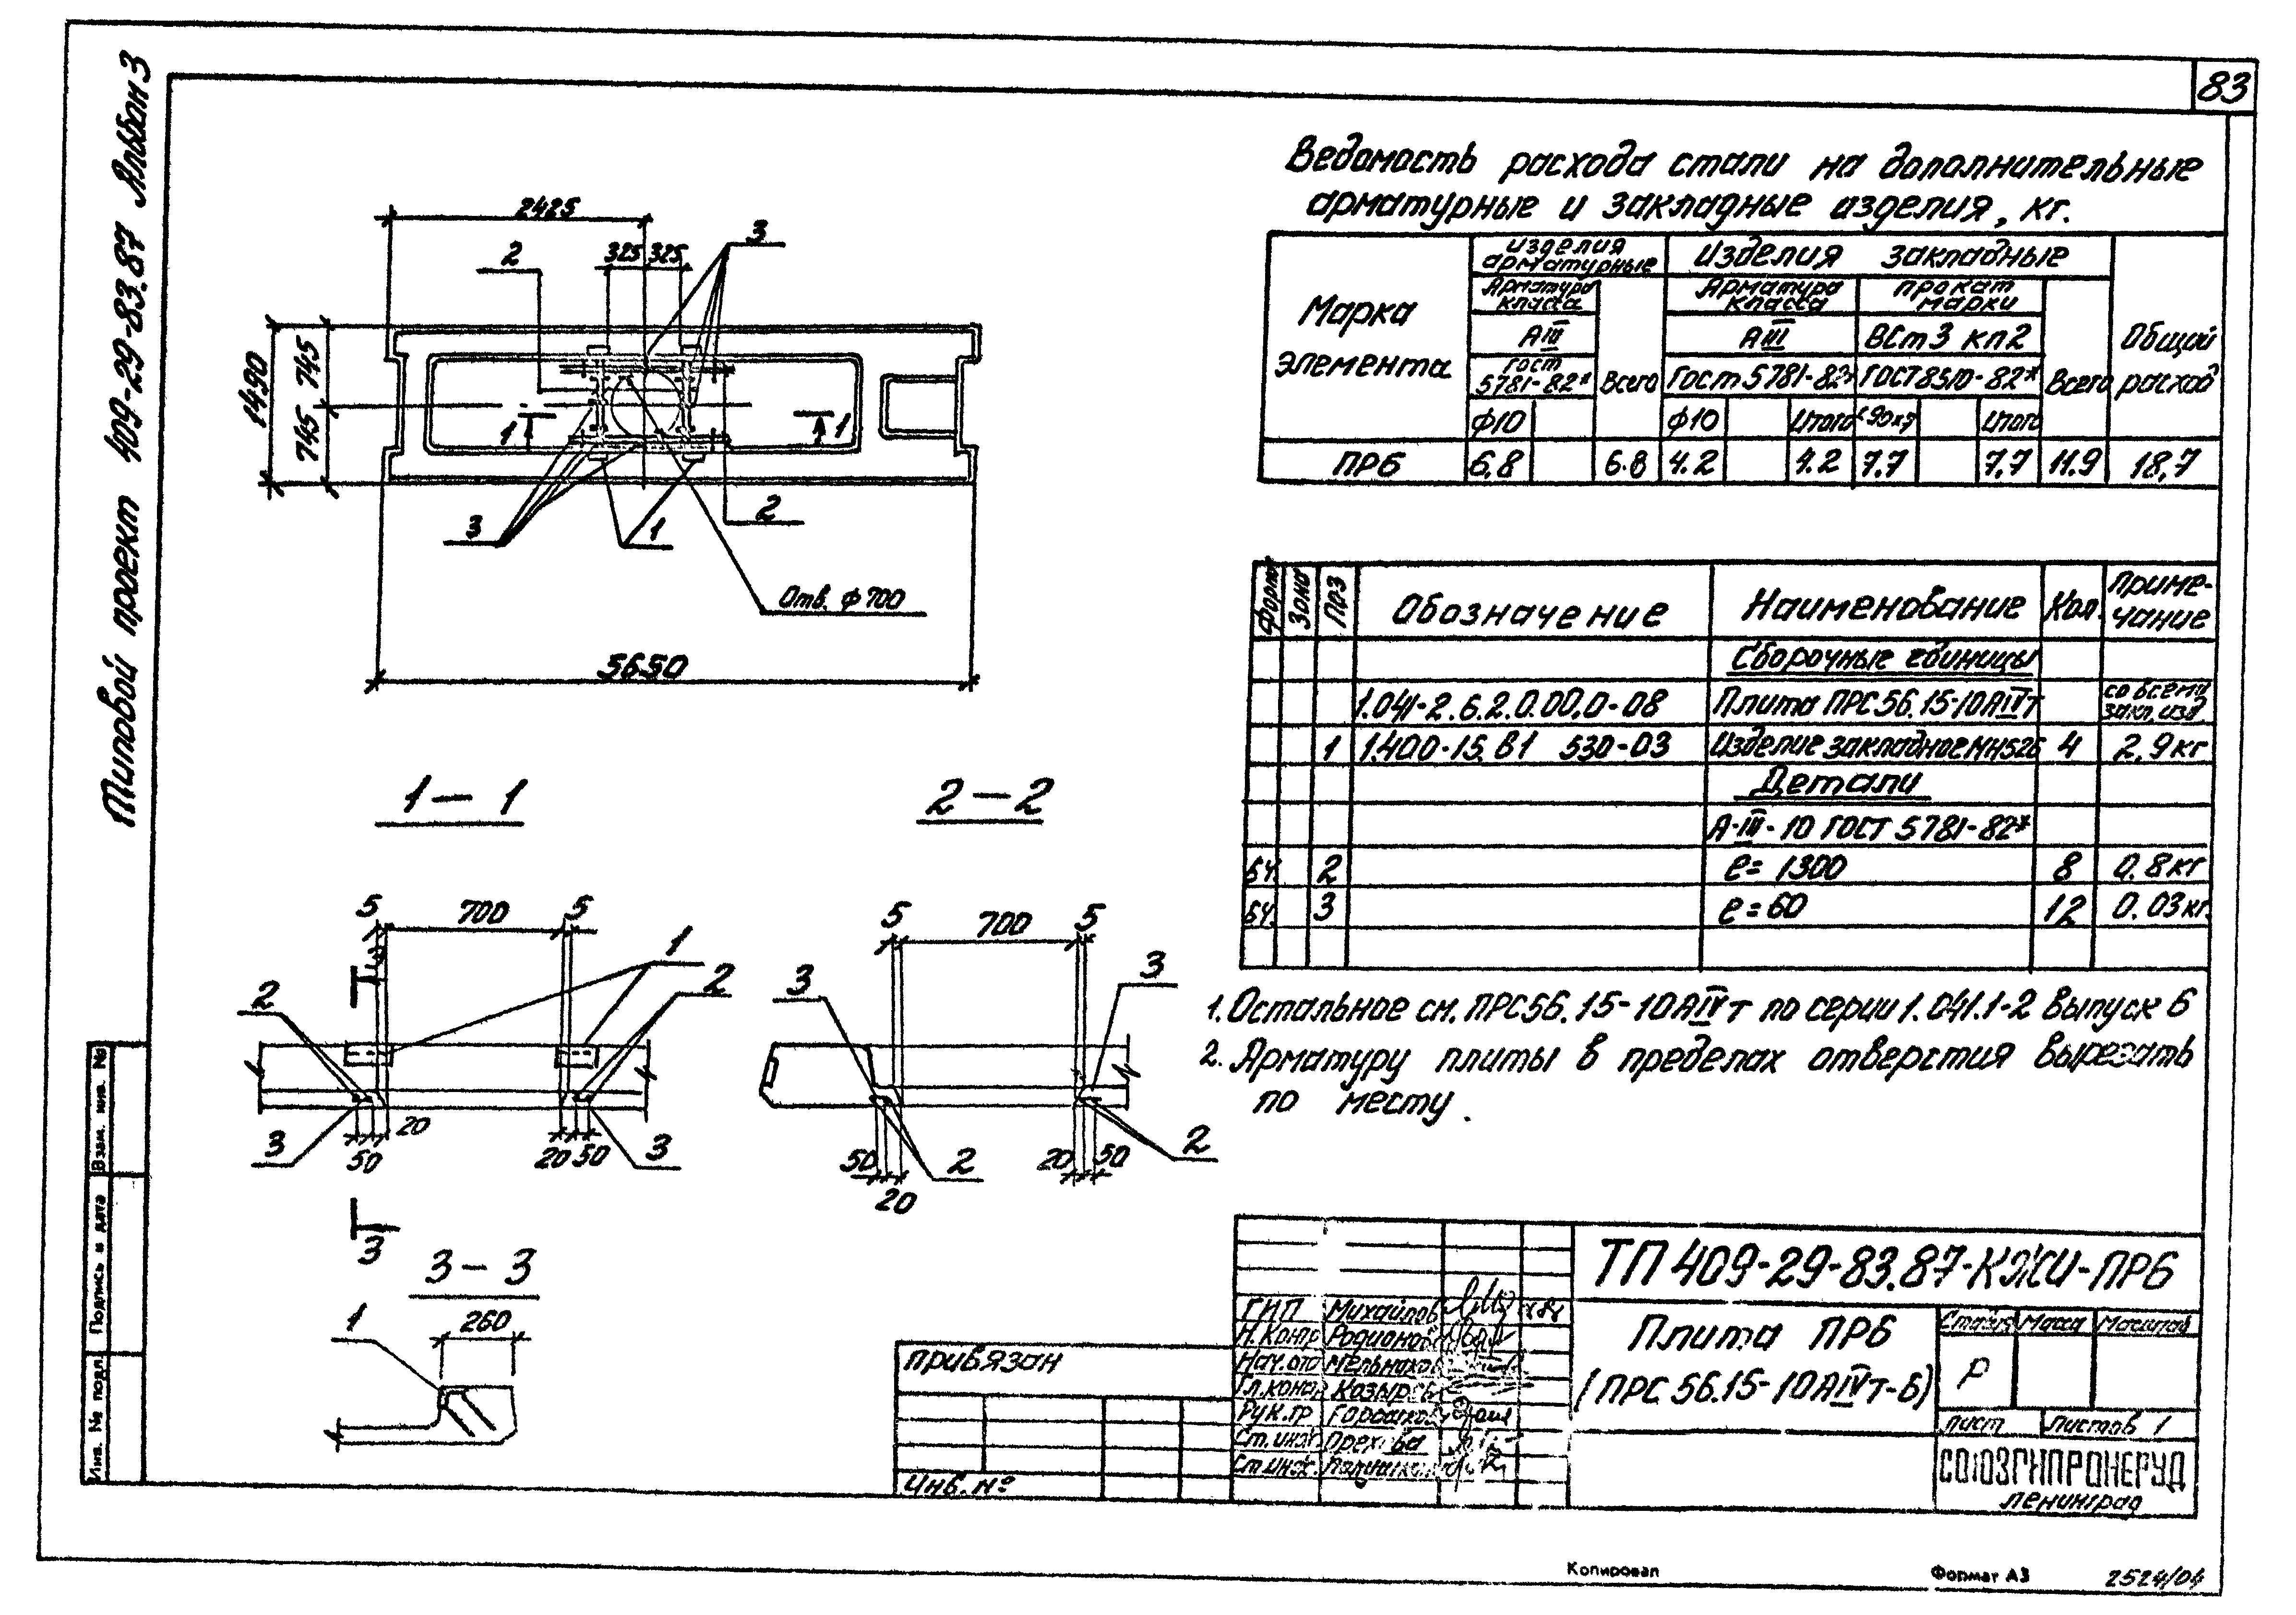 83
Типовой проект 409-29-83.87 Альбом 3
Ведомость расхода стали на дополнительные
арматурные и закладные изделия, кг.
Марка элемента
изделия арматурные
Изделия закладные
Общий расход
Арматура класса
Всего
Арматура класса
прокат марки
Всего
АIII
АIII
ВСт3 кп2
ГОСТ 5781-82*
ГОСТ 5781-82*
ГОСТ 8510-82*
ф10
ф10
Итого
Итого
ПР6 6,8 6.8 4.2 4.2 7.7 7,7 11.9 18,7
2425
325 325
2
3
1490
745
745
1
1
3
1
2
Отв. ф 700
5650
Формат Зона Поз Обозначение Наименование Кол. Примечание
Сборочные единицы
1.041-2.6.2.0.00.0-08 Плита ПРС56.15-10АIVт со всеми закл. изд.
1 1.400-15.В1 530-03 Изделие закладное МН526 4 2,9кг
Детали
А-III-10 ГОСТ 5781-82*
БЧ. 2 ℓ= 1300 8 0.8кг
БЧ. 3 ℓ=60 12 0.03кг.
1. Остальное см. ПРС56.15-10АIVт по серии 1.041.1-2 выпуск 6
2. Арматуру плиты в пределах отверстия вырезать
по месту.
1-1
5 700 5
1
2
2
3
50
20
20 50
3
3
2-2
5 700 5
3
3
50
20
2
20 50
2
3-3
1
260
Взам. инв. №
Подпись и дата
Инв. № подл.
привязан
Инв. №
ГИП Михайлов
Н. контр Родионова
Нач. отд
Гл. констр Козырев
Рук. гр
Ст. инж
Ст. инж.
ТП 409-29-83.87-КЖИ-ПР6
Плита ПР6
(ПРС 56.15-10АIVт-6)
Стадия Масса Масштаб
Р
Лист Листов 1
СОЮЗГИПРОНЕРУД
Ленинград
Копировал
Формат А3
2524/04